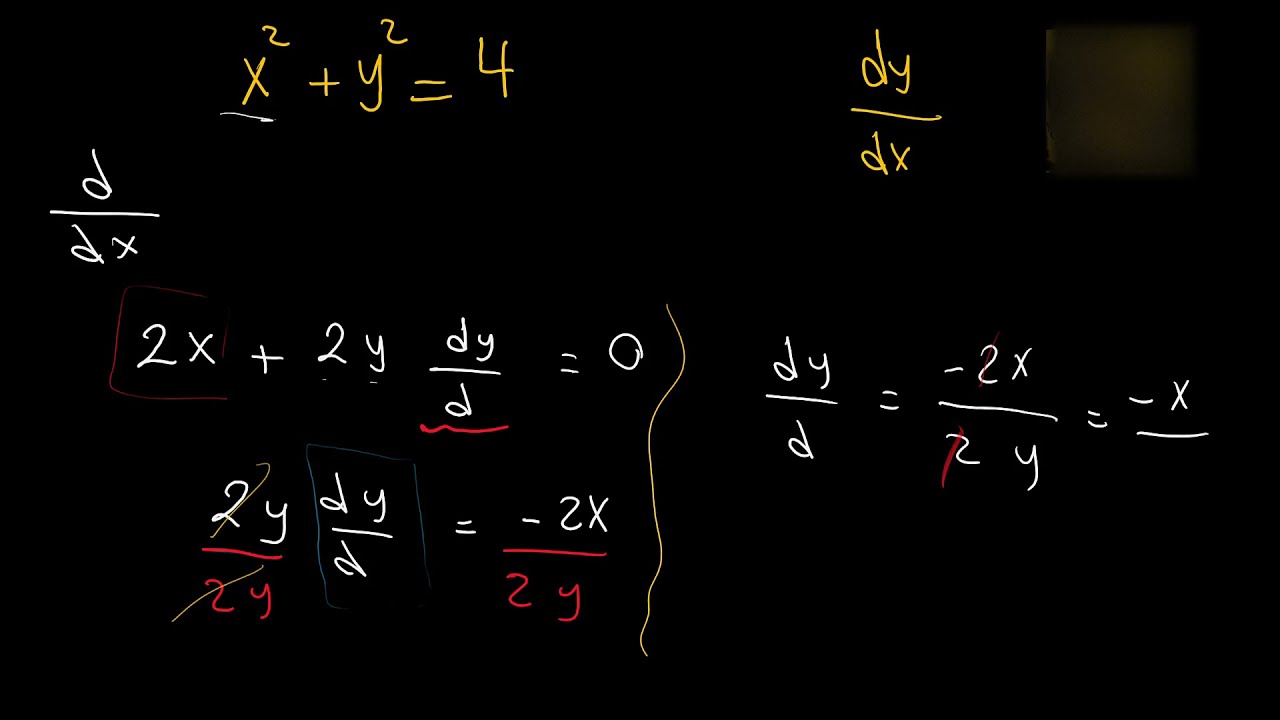 x² + y² = 4
dy/dx
d/dx
2x + 2y dy/d = 0
2y/2y dy/d = -2x/2y
dy/d = -2x/2y = -x